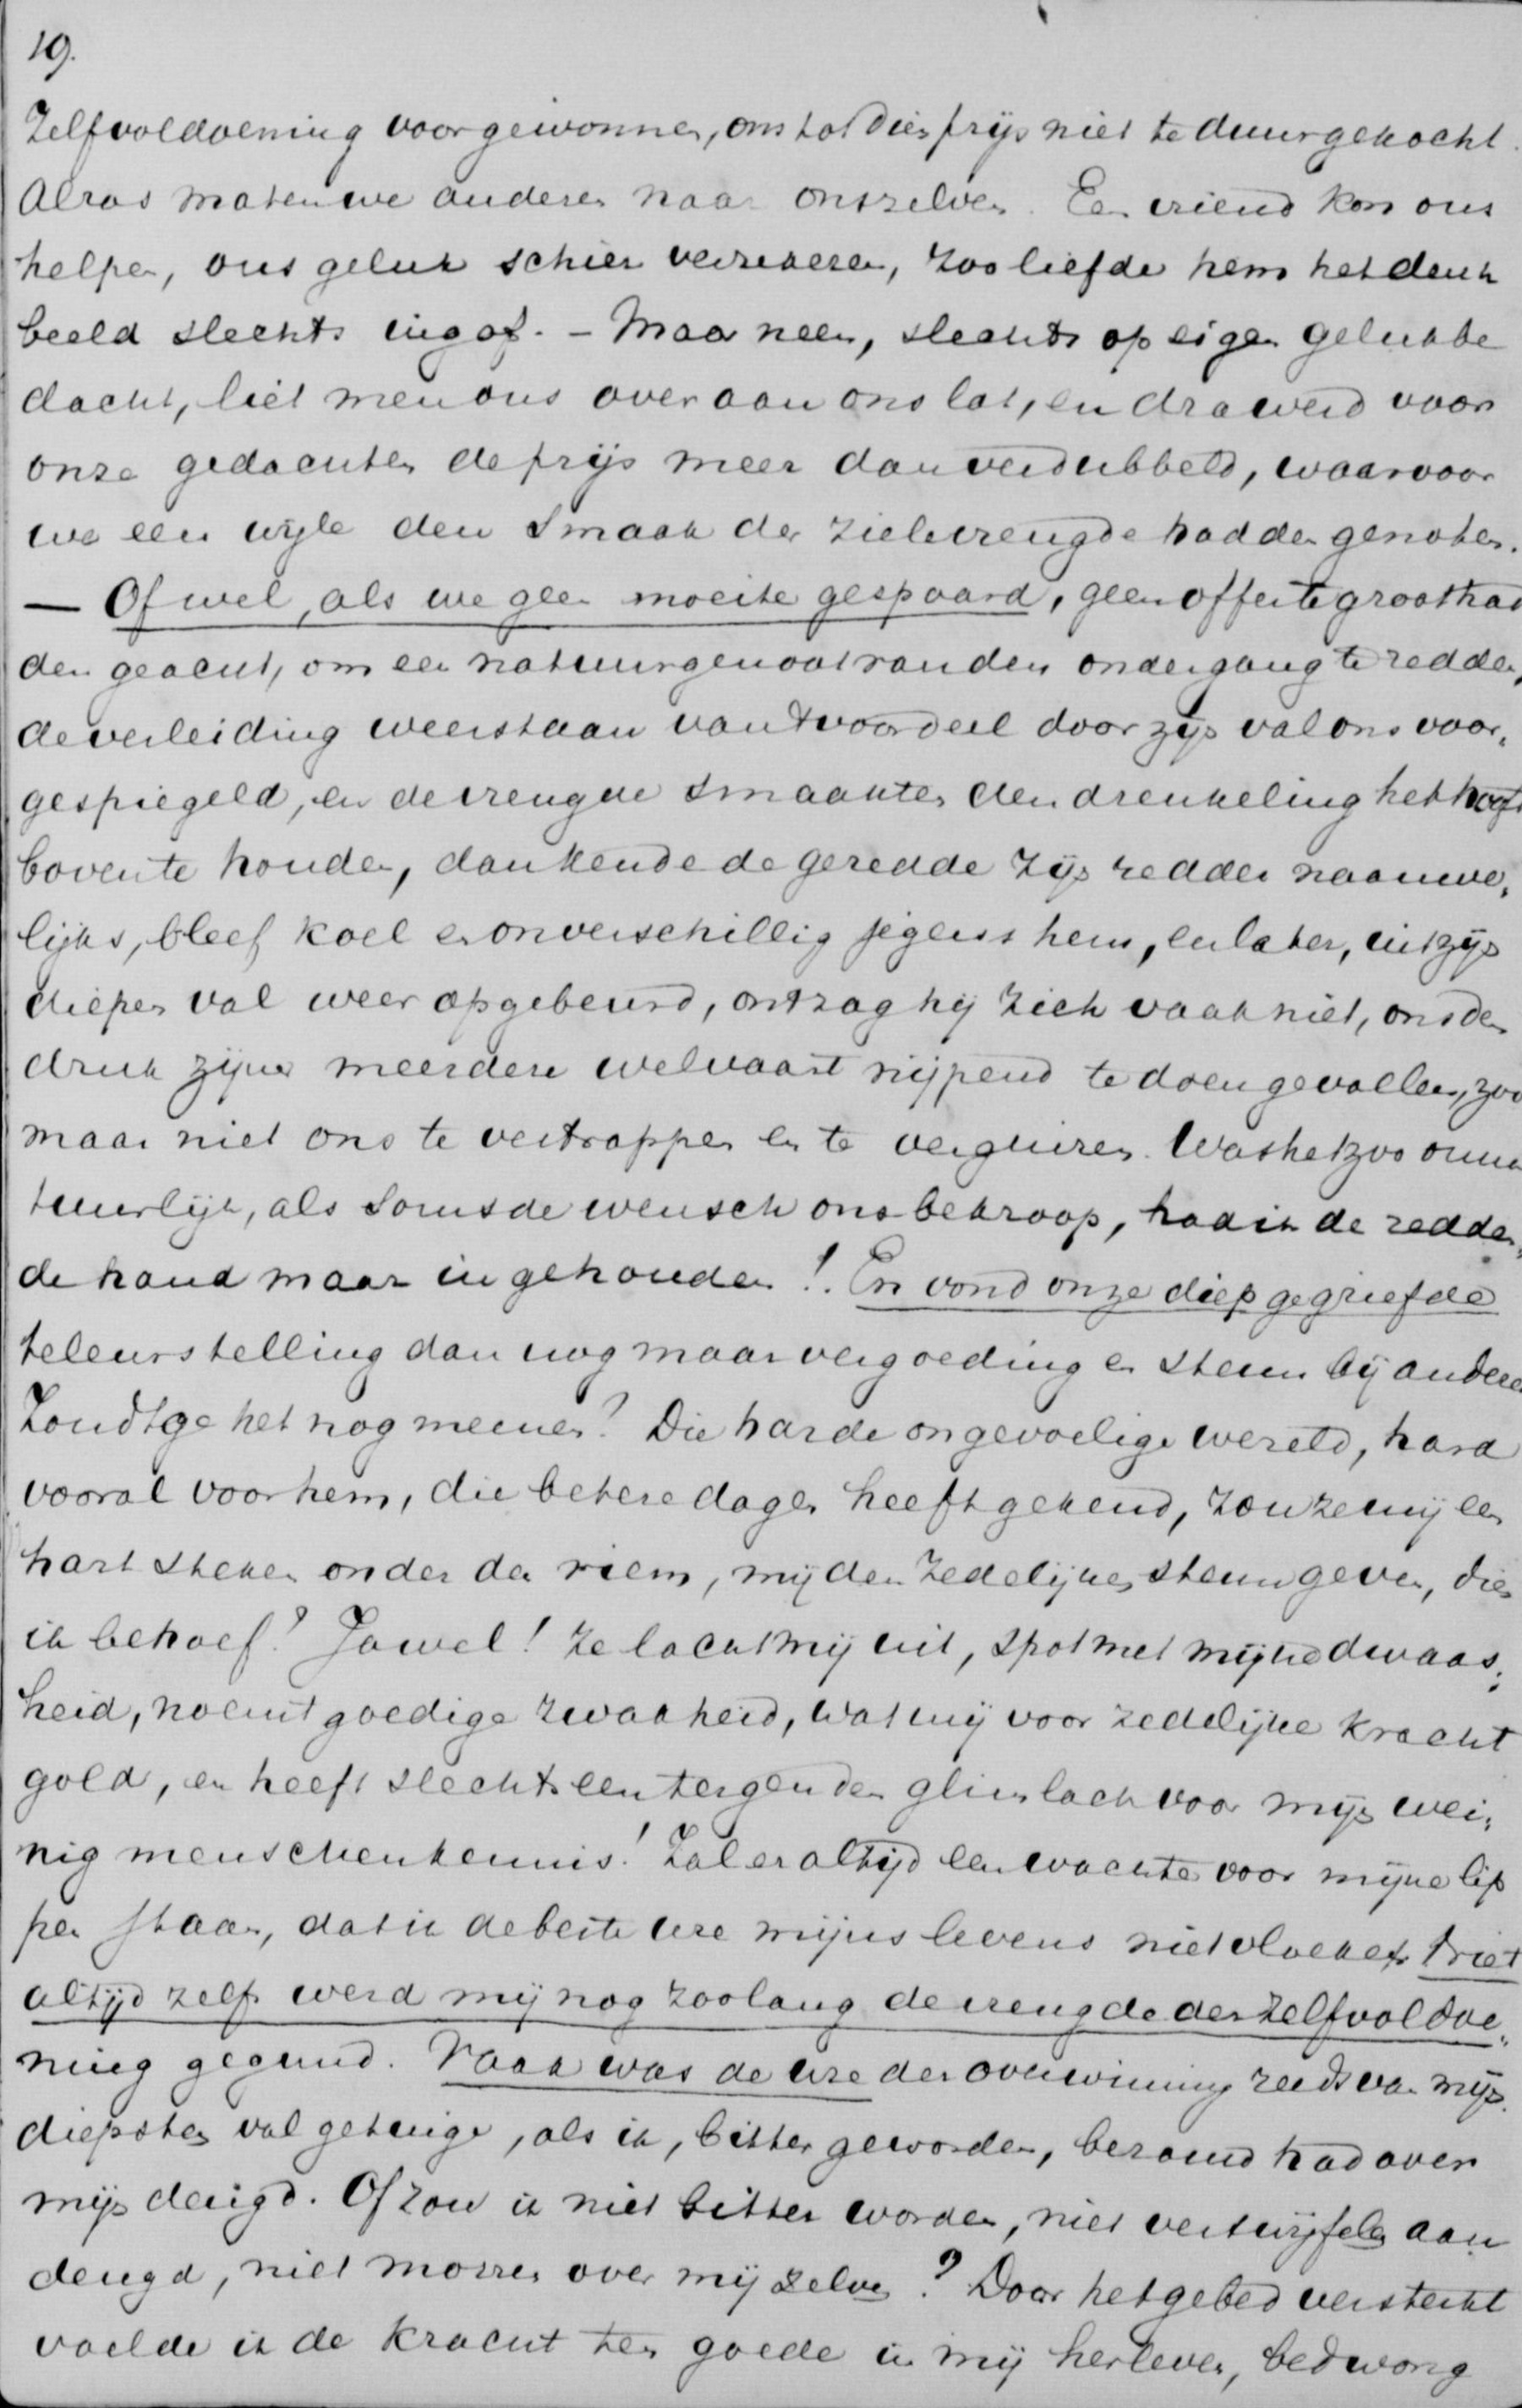 19.
Zelfvoldoening voor gewonnen, ons tot dien prijs niet te duur gekocht.
Alras maten we anderen naar onszelven. Een vriend kon ons
helpen, ons geluk schier verzekeren, zoo liefde hem het denk
beeld slechts ingaf. – Maar neen, slechts op eigen geluk be
dacht, liet men ons over aan ons lot, en dra werd voor
onze gedachten de prijs meer dan verdubbeld, waarvoor
we een wijle den smaak der zielevreugde hadden genoten.
— Of wel, als we geen moeite gespaard, geen offer te groot had
den geacht, om een natuurgenoot van den ondergang te redden,
de verleiding weerstaan van 't voordeel door zijn val ons voor„
gespiegeld, en de vreugde smaakten den drenkeling het hoofd
boven te houden, dankende de geredde zijn redder naauwe„
lijks, bleef koel en onverschillig jegens hem, en later, uit zijn
diepen val weer opgebeurd, ontzag hij zich vaak niet, ons den
druk zijner meerdere welvaart nijpend te doen gevoelen, zoo
maar niet ons te vertrappen en te verguizen. Was het zoo onna
tuurlijk, als soms de wensch ons bekroop, had ik de redden„
de hand maar ingehouden!. En vond onze diep gegriefde
teleurstelling dan nog maar vergoeding en steun bij anderen
Zoudt ge het nog meenen? Die harde ongevoelige wereld, hard
vooral voor hem, die betere dagen heeft gekend, zou ze mij een
hart steken onder den riem, mij den zedelijken steun geven, dien
ik behoef? Jawel! ze lacht mij uit, spot met mijne dwaas„
heid, noemt goedige zwakheid, wat mij voor zedelijke kracht
gold, en heeft slechts een tergenden glimlach voor mijn wei„
nig menschenkennis! Zal er altijd een wachter voor mijne lip
pen staan, dat ik de beste ure mijns levens niet vloeke? Niet
altijd zelfs werd mij nog zoolang de vreugde der zelfvoldoe„
ning gegund. Vaak was de ure der overwinning reeds van mijn
diepsten val getuige, als ik, bitter geworden, berouw had over
mijn deugd. Of zou ik niet bitter worden, niet vertwijfelen aan
deugd, niet morren over mij zelven? Door het gebed versterkt
voelde ik de kracht ten goede in mij herleven, bedwong